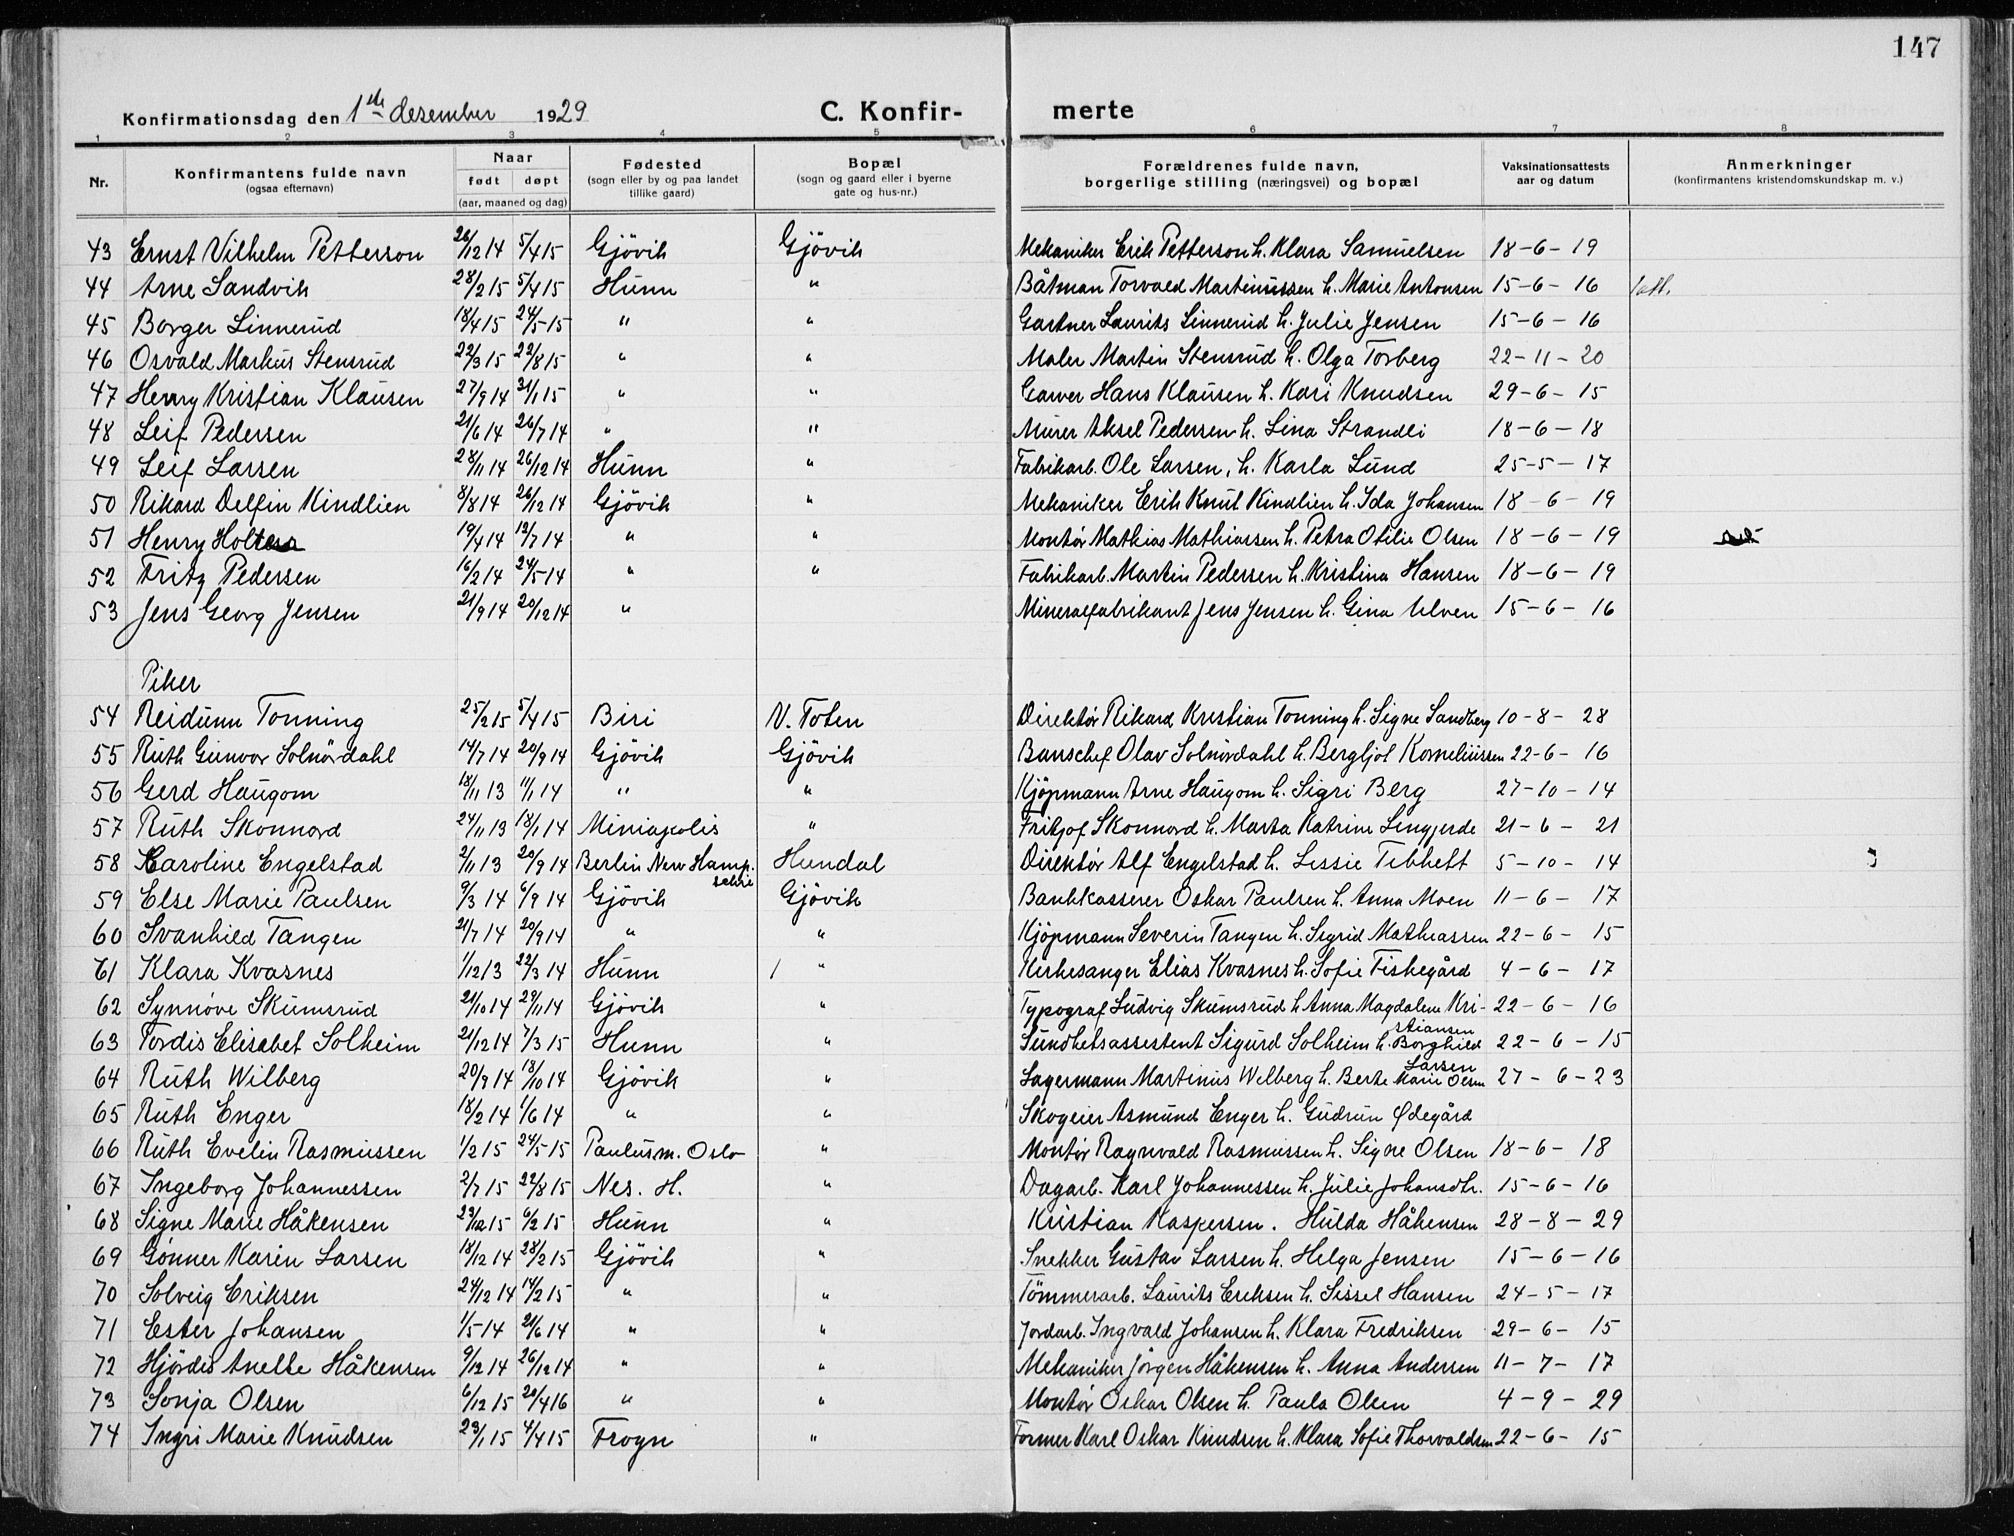 147
Konfirmationsdag den 1ste desember 1929 C. Konfir- merte
1 2 3 4 5 6 7 8
Nr. Konfirmantens fulde navn (ogsaa efternavn) Naar født døpt (aar, maaned og dag) Fødested (sogn eller by og paa landet tillike gaard) Bopæl (sogn og gaard eller i byerne gate og hus-nr.) Forældrenes fulde navn, borgerlige stilling (næringsvei) og bopæl Vaksinationsattests aar og datum Anmerkninger (konfirmantens kristendomskundskap m. v.)
43 Ernst Vilhelm Petterson 26/12 14 5/4 15 Gjövik Gjövik Mekaniker Erik Petterson h. Klara Samuelsen 18-6-19
44 Arne Sandvik 28/2 15 5/4 15 Hunn " Båtman Torvald Martinussen h. Marie Antonsen 15-6-16
45 Borger Linnerud 18/4 15 24/5-15 " " Gartner Laurits Linnerud h. Julie Jensen 15-6-16
46 Osvald Markus Stensrud 22/3 15 22/8 15 " " Maler Martin Stensrud h. Olga Torberg 22-11-20
47 Henry Kristian Klausen 27/9 14 31/1 15 " " Garver Hans Klausen h. Kari Knudsen 29-6-15
48 Leif Pedersen 21/6 14 26/7 14 " " Murer Aksel Pedersen h. Lina Strandli 18-6-18
49 Leif Larsen 28/11 14 26/12 14 Hunn " Fabrikarb. Ole Larsen, h. Karla Lund 25-5-17
50 Rikard Delfin Kindlien 8/8 14 26/12 14 Gjövik " Mekaniker Erik Knut Kindlien h. Ida Johansen 18-6-19
51 Henry Holter 19/4 14 12/7 14 " " Montør Mathias Mathiassen h. Petra Otilie Olsen 18-6-19
52 Fritz Pedersen 16/2 14 24/5 14 " " Fabrikarb. Martin Pedersen h. Kristina Hansen 18-6-19
53 Jens Georg Jensen 21/9 14 20/12 14 " Mineralfabrikant Jens Jensen h. Gina Ulven 15-6-16
Piker
54 Reidunn Tonning 25/2 15 5/4 15 Biri V. Toten Direktör Rikard Kristian Tonning h. Signe Sandberg 10-8-28
55 Ruth Gunvor Solnördahl 14/7 14 20/9 14 Gjövik Gjövik Banschef Olav Solnördahl h. Bergljot Korneliussen 22-6-16
56 Gerd Haugom 18/11 13 11/1 14 " " Kjöpmann Arne Haugom h. Sigri Berg 27-10-14
57 Ruth Skonnord 24/11 13 18/1 14 Miniapolis " Fritjof Skonnord h. Marta Katrine Lengjerde 21-6-21
58 Karoline Engelstad 2/11 13 20/9 14 Berlin New Hamp. schire Hundal Direktör Alf Engelstad h. Lissie Tibbett 5-10-14
59 Else Marie Paulsen 9/3 14 6/9 14 Gjövik Gjövik Bankkasserer Oskar Paulsen h. Anna Moen 11-6-17
60 Svanhild Tangen 21/7 14 20/9 14 " " Kjöpmann Severin Tangen h. Sigrid Mathiassen 22-6-15
61 Klara Kvasnes 1/12 13 22/3 14 Hunn " Kirkesanger Elias Kvasnes h. Sofie Fiskegård 4-6-17
62 Synnöve Skumsrud 21/10 14 29/11 14 Gjövik " Typograf Ludvig Skumsrud h Anna Magdalene Kri- 22-6-16
stiansen
63 Tordis Elisabet Solheim 21/12 14 7/3 15 Hunn " Sundhetsassistent Sigurd Solheim h. Borghild 22-6-15
Larsen
64 Ruth Wilberg 20/9 14 18/10 14 Gjövik " Lagermann Martinus Wilberg h. Berte Marie Olsen 27-6-23
65 Ruth Enger 18/2 14 1/6 14 " " Skogeier Asmund Enger h. Gudrun Ødegård
66 Ruth Evelin Rasmussen 1/2 15 24/5-15 Paulusm. Oslo " Montör Ragnvald Rasmussen h. Signe Olsen 18-6-18
67 Ingeborg Johannessen 2/7 15 22/8 15 Nes. H. " Dagarb. Karl Johannessen h. Julie Johansdtr. 15-6-16
68 Signe Marie Håkensen 15 6/2 15 Hunn " Kristian Kaspersen. Hulda Håkensen 28-8-29
69 Gunner Karin Larsen 18/12 14 28/2 15 Gjövik " Snekker Gustav Larsen h. Helga Jensen 15-6-16
70 Solveig Eriksen 24/12 14 14/2 15 " " Tömmerarb. Laurits Eriksen h. Sissel Hansen 24-5-17
71 Ester Johansen 1/5-14 21/6 14 " " Jordarb. Ingvald Johansen h. Klara Fredriksen 29-6-15
72 Hjördis Anelle Håkensen 9/12 14 26/12 14 " " Mekaniker Jörgen Håkensen h. Anna Andersen 11-7-17
73 Sonja Olsen 6/12 15 20/4 16 " " Montör Oskar Olsen h. Paula Olsen 4-9-29
74 Ingri Marie Knudsen 23/1 15 4/4 15 Frogn " Former Karl Oskar Knudsen h. Klara Sofie Thorvaldsen 22-6-15